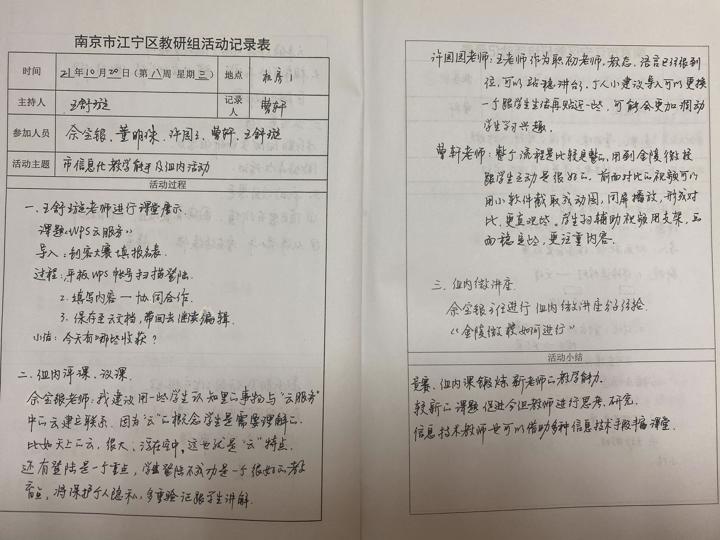 南京市江宁区教研组活动记录表
时间 21年10月20日(第八周 星期三) 地点 机房1
主持人 王舒璇 记录人 曹轩
参加人员 余宝银、董明珠、许国玉、曹轩、王舒璇
活动主题 市信息化教学能手及组内活动
活动过程
一、王舒璇老师进行课堂展示.
课题《WPS云服务》
导入:创客大赛填报名表.
过程:平板WPS帐号扫描登陆.
2. 填写内容 — 协同合作.
3. 保存至云文档,带回去继续编辑.
小结:今天有哪些收获?
二、组内评课、议课.
余宝银老师:我建议用一些学生认知里的事物与“云服务”
中的云建立联系.因为“云”的概念学生是需要理解的.
比如天上的云,很大,浮在空中,这也就是“云”特点.
还有登陆是一个重点,学生登陆不成功是一个很好的教
育点,将保护个人隐私,多重验证跟学生讲解.
老师:王老师作为职初老师,教态、语言已经很到
位,可以站稳讲台,个人小建议导入可以更换
一个跟学生生活再贴近一些,可能会更加调动
学生学习兴趣.
曹轩老师:整个流程是比较完整的,用到金陵微校
跟学生互动是很好的.前面对比的视频可以
用小软件截取成动图,同屏播放,形成对
比,更直观些.学生的辅助视频用支架,画
面稳定些,更注重内容.
三、组内微讲座.
余宝银主任进行组内微讲座分享经验.
《金陵微校如何进行》
活动小结
竞赛、组内课锻炼新老师的教学能力.
较新的课题促进令组教师进行思考、研究.
信息技术教师也可以借助多种信息技术手段丰富课堂.